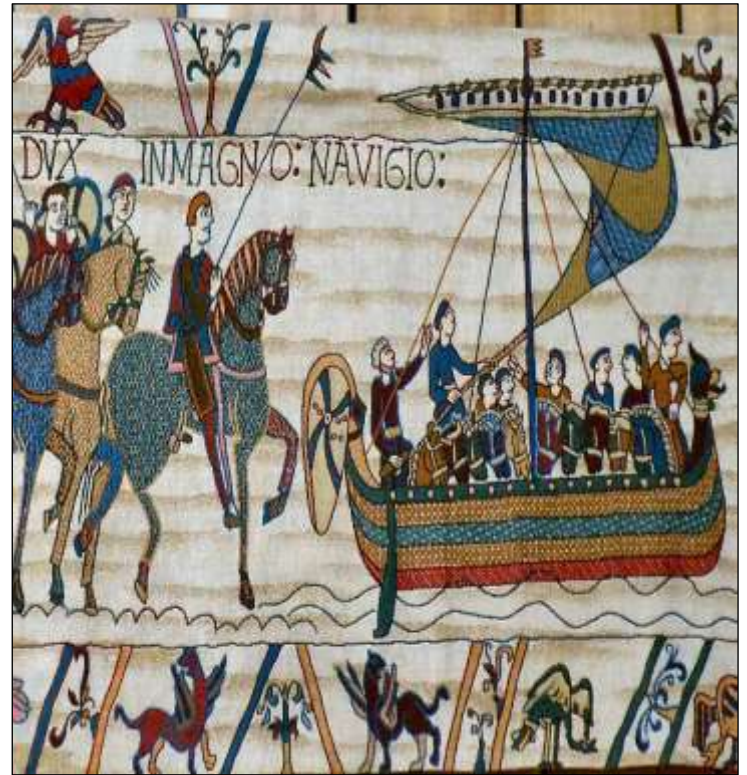 DVX IN MAGNO: NAVIGIO: